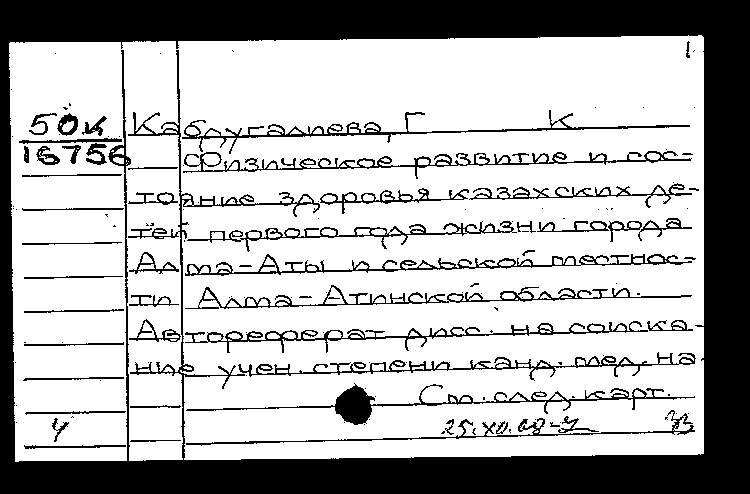 1
50к Кабдугалиева, Г К
16756 Физическое развитие и сос=
тояние здоровья казахских де-
тей первого года жизни города
Алма-Аты и сельской местнос=
ти Алма-Атинской области.
Автореферат дисс. на соиска-
ние учен. степени канд. мед. на
См. след. карт.
У